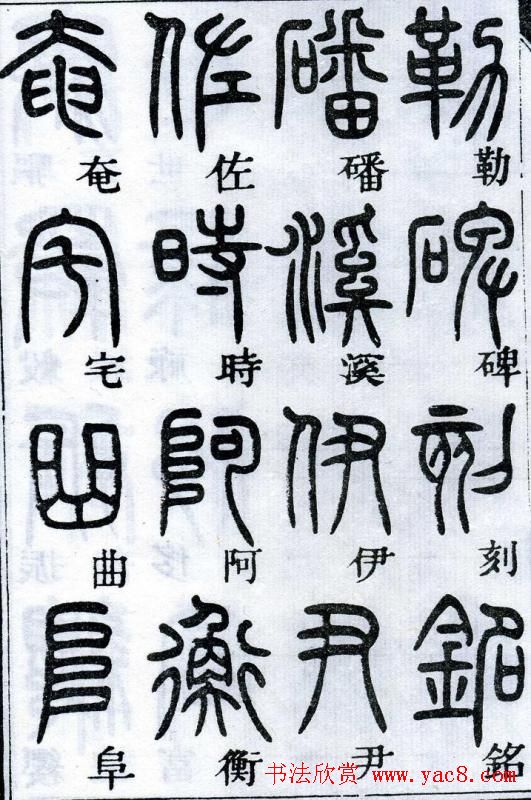 勒碑刻銘
磻溪伊尹
佐時阿衡
奄宅曲阜
书法欣赏 www.yac8.com